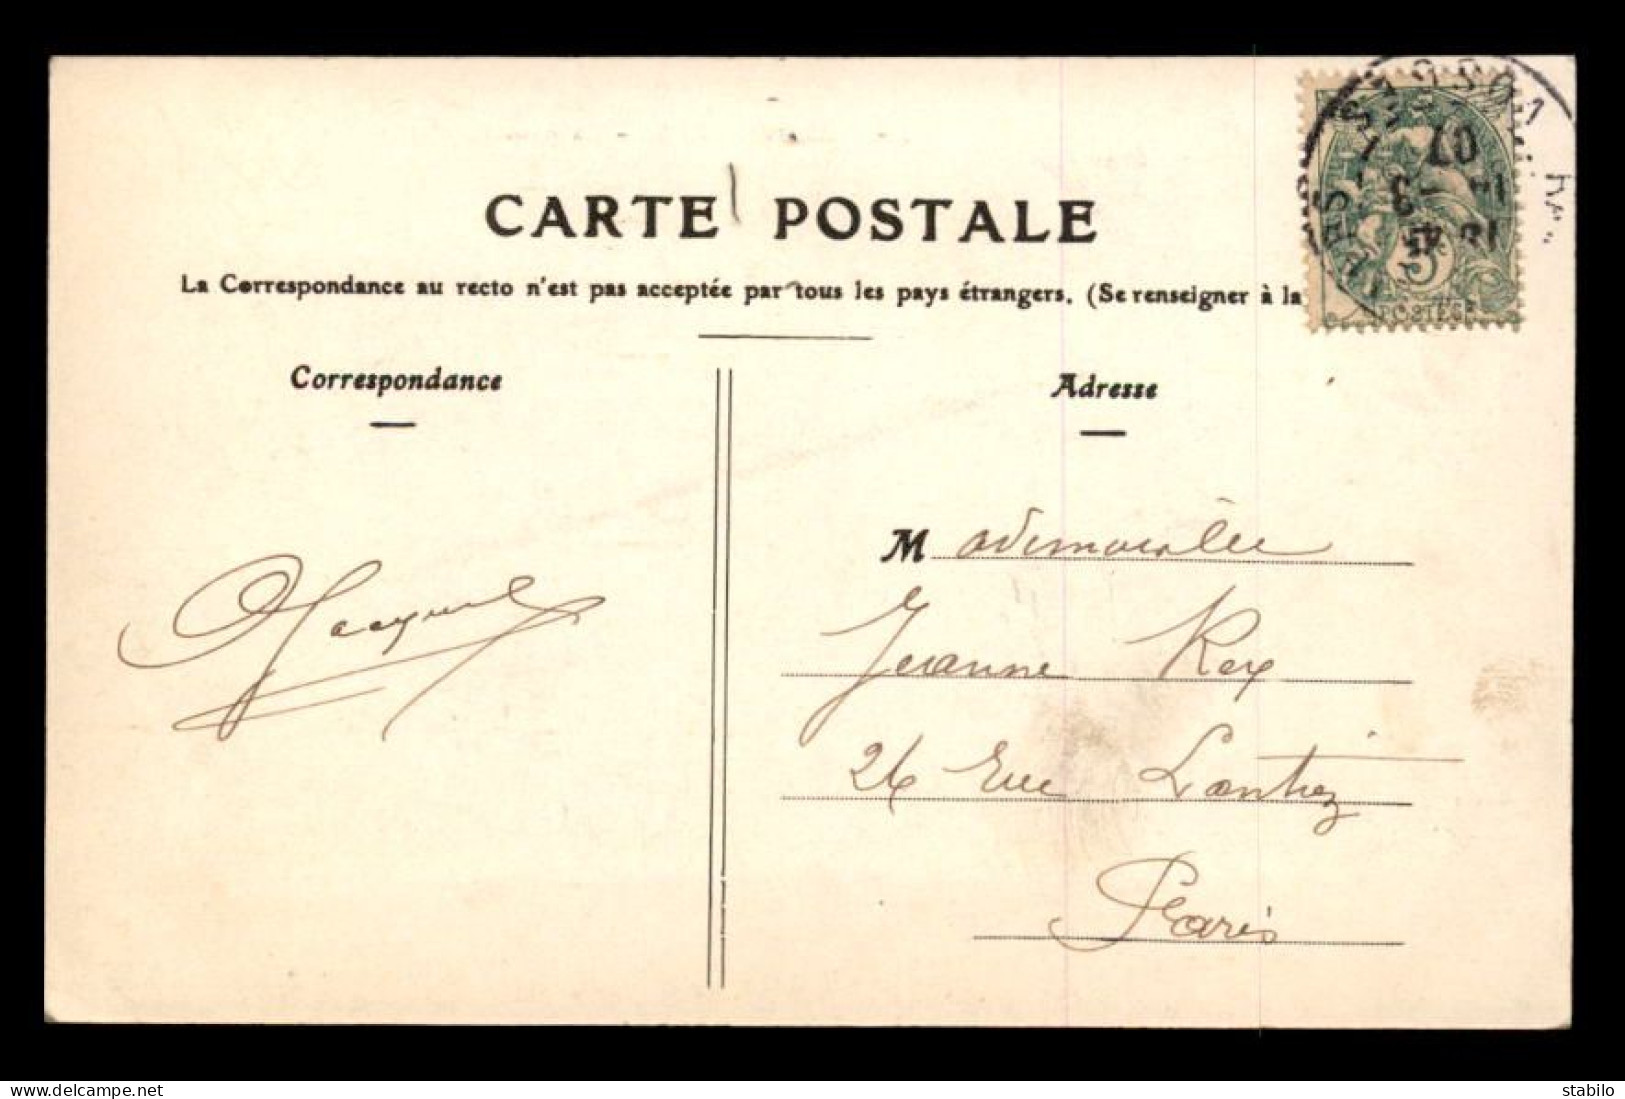 CARTE POSTALE
La Correspondance au recto n'est pas acceptée par tous les pays étrangers. (Se renseigner à la
Correspondance
Adresse
Mademoiselle
Jeanne Rey
26 Rue Lantiez
Paris
07
POSTES
www.delcampe.net
stabilo